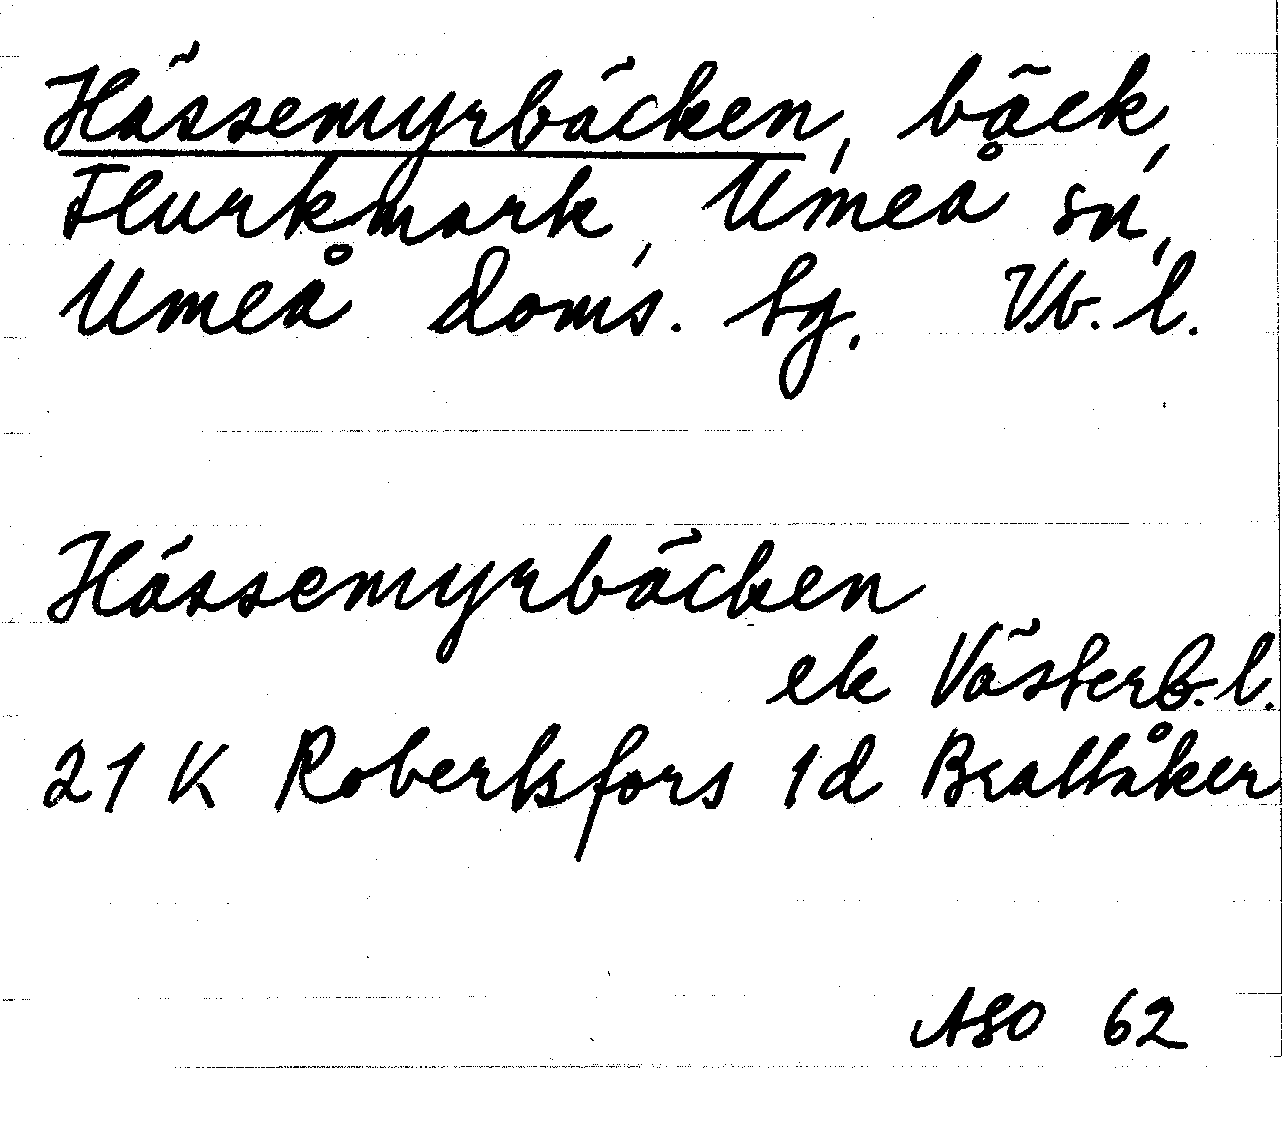 Hässemyrbäcken, bäck,
Flurkmark, Umeå sn,
Umeå doms. tg. Vb. l.
Hässemyrbäcken
ek Västerb. l.
21 K Robertsfors 1d Brattåker
ASO 62